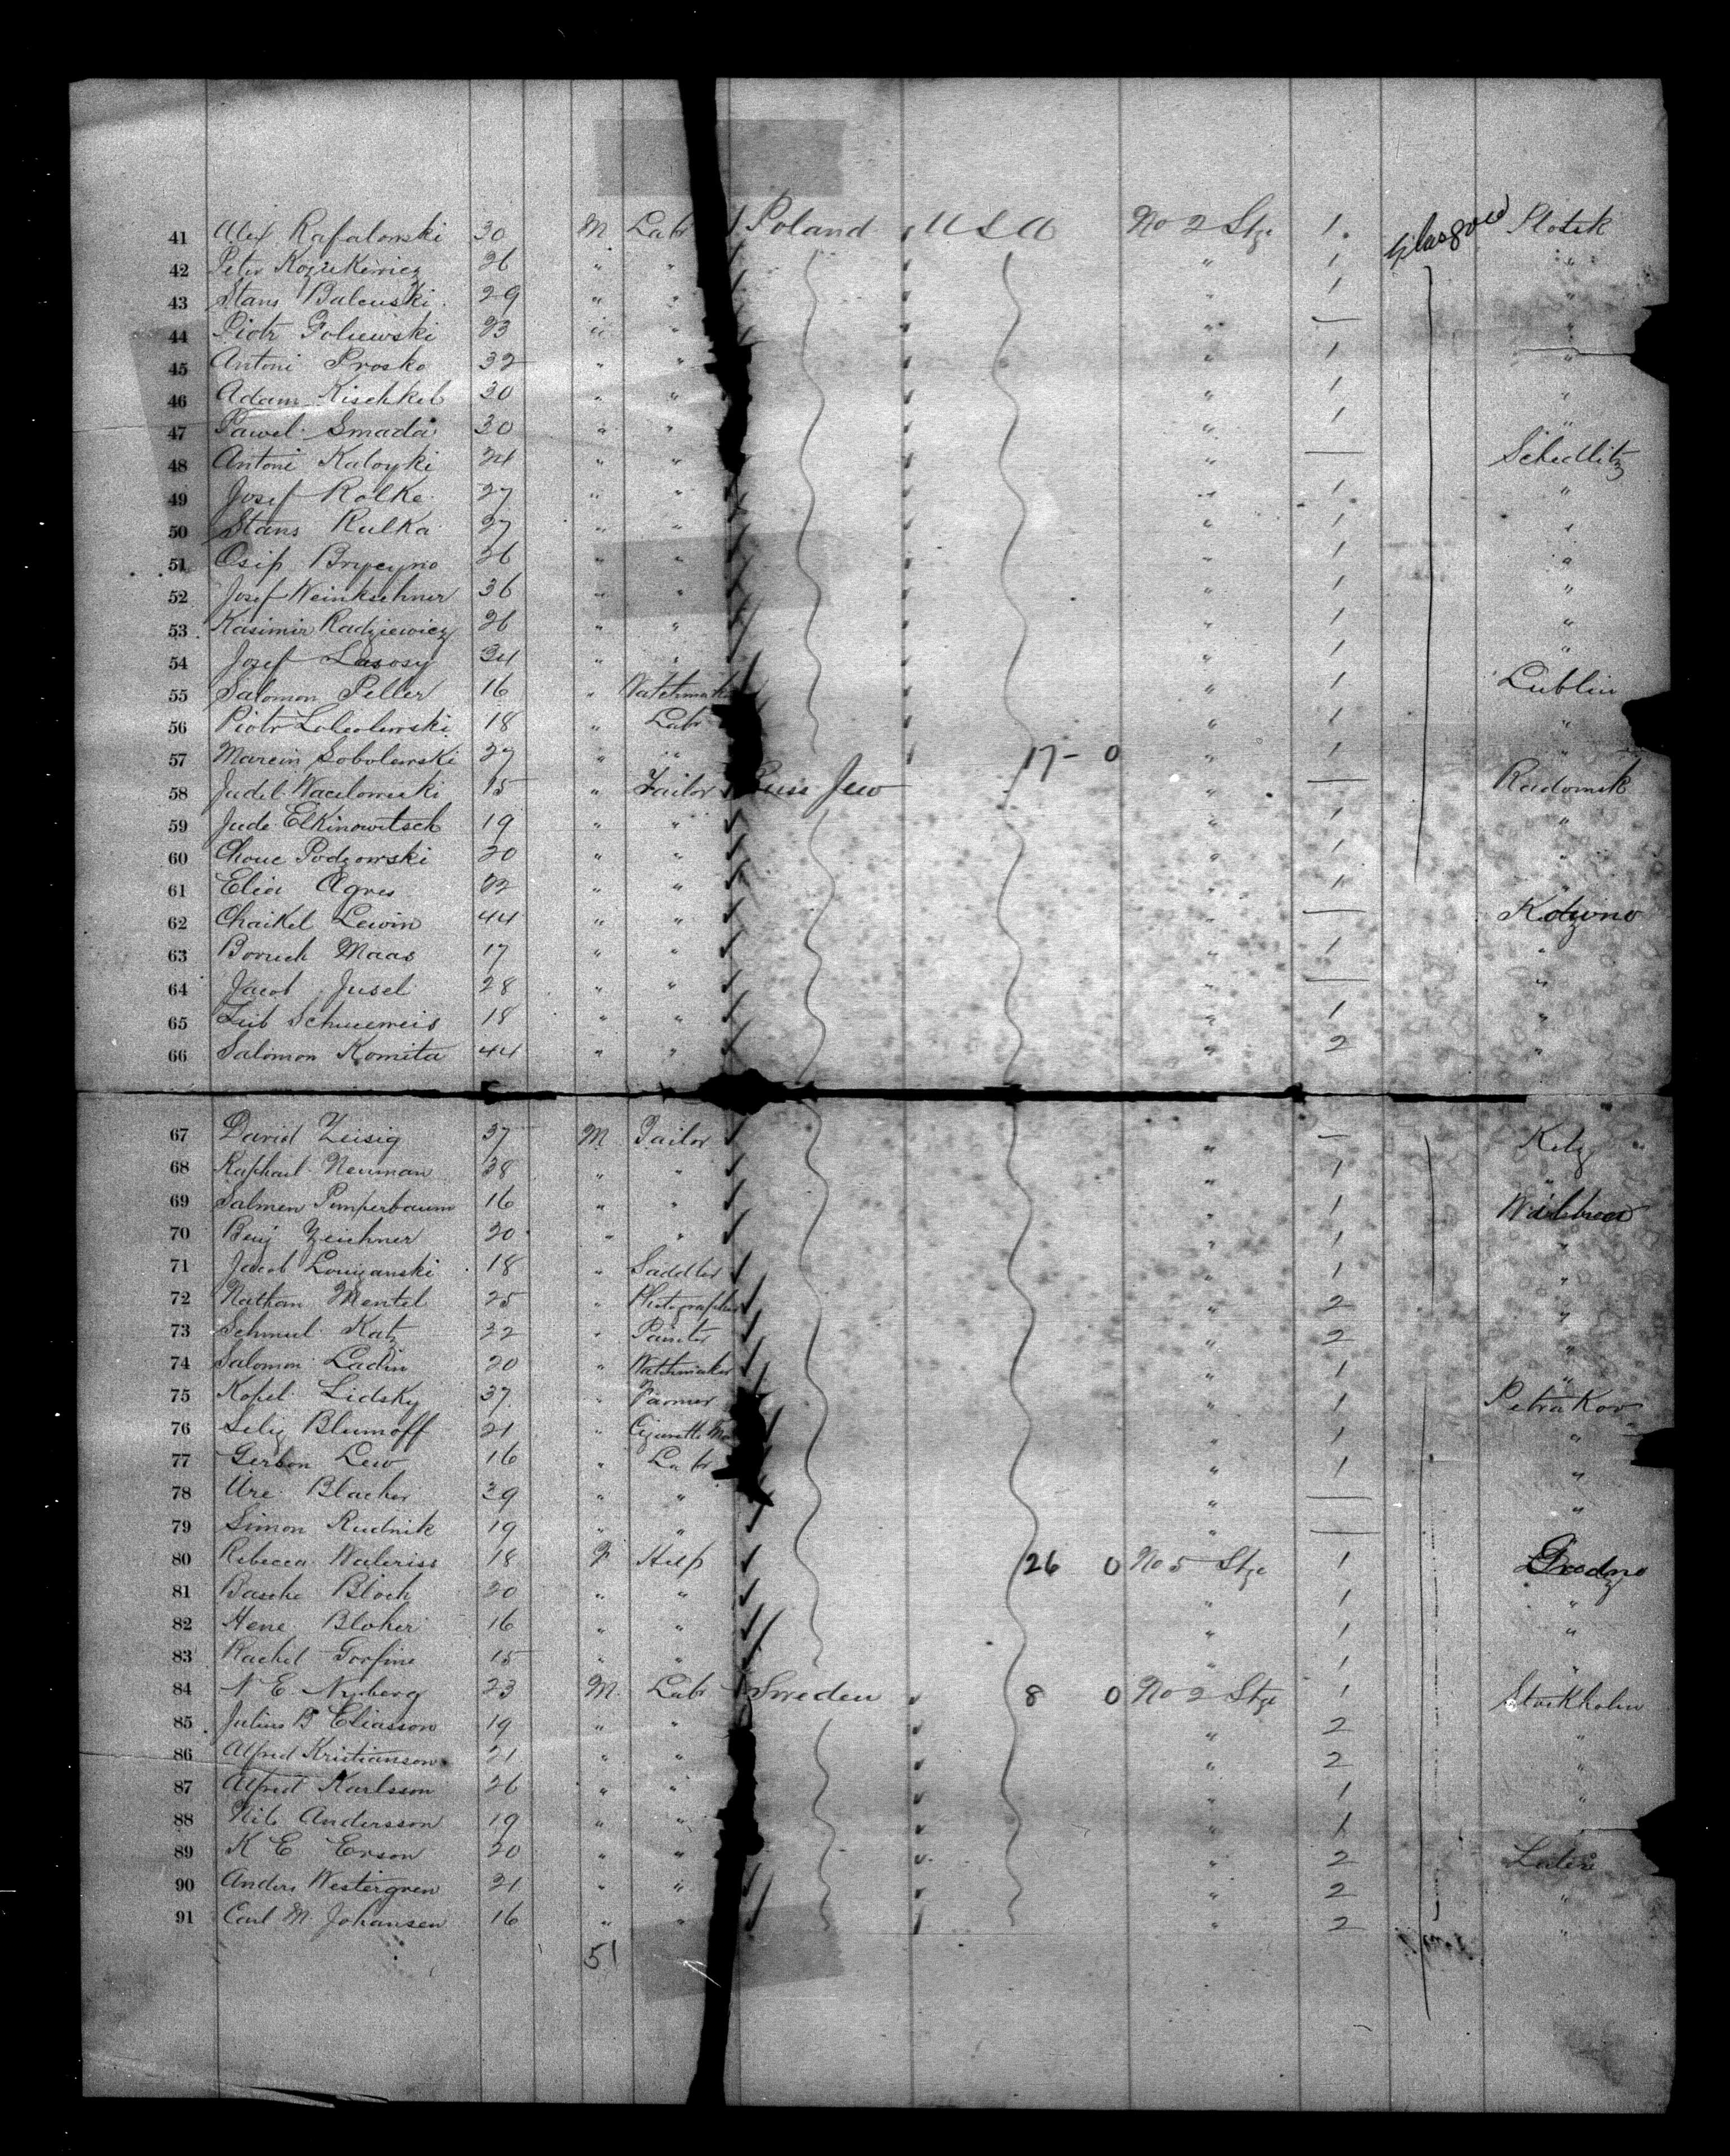 41 Alex Rafalonski 30 M Labr Poland U S A No 2 Stge 1. Glasgow Plotsk
42 Peter 26 " " " 1 "
43 Stans Balcuski 29 " " " 1 "
44 Piotr 23 " " " — "
45 Antoni Prosko 32 " " " 1 "
46 Adam Kischkel 30 " " " 1 "
47 Pawel Smada 30 " " " 1 "
48 Antoni 24 " " " — Schedlitz
49 Josef Rolke 27 " " " 1 "
50 Stans Rulka 27 " " " 1 "
51 Osip 26 " " " 1 "
52 Josef 36 " " " 1 "
53 Kasimir Radziewicz 26 " " " 1 "
54 Josef Lasosy 34 " " " 1 "
55 Salomon Peller 16 " Watchmaker " 1 Lublin
56 Piotr 18 " Labr " 1 "
57 Marcin Sobolewski 27 " " 17 - 0 " 1 "
58 Judel 15 " Tailor Russ Jew " — Radomsk
59 Jude Elkinowitsch 19 " " " 1 "
60 Podzowski 20 " " " 1 "
61 Elia Agres 22 " " " 1 "
62 Chaikel Lewin 44 " " " —
63 Boruch Maas 17 " " " 1 "
64 Jacob Jusel 28 " " " — "
65 Leib 18 " " " 1 "
66 Salomon Komita 44 " " " 2 "
67 David Zeisig 37 M Tailor " — Kelz
68 Raphael Neuman 38 " " " 1 "
69 Salmen Pimperbaum 16 " " " 1
70 Benj Zeichner 20 " " " 1 "
71 Jacob 18 " Saddler " 1 "
72 Nathan Mentel 25 " Photographer " 2 "
73 Schmul Katz 32 " Painter " 2 "
74 Salomon Ladin 20 " Watchmaker " 1 "
75 Kopel Lidsky 37 " Farmer " 1 Petrakov
76 Selig Blumoff 21 " Cigarette " 1 "
77 Gerson Lew 16 " Labr " 1 "
78 Ure Blacher 39 " " " — "
79 Simon Rudnik 19 " " " — "
80 Rebecca 18 F Help 26 0 No 5 Stge 1 Grodno
81 Basche Bloch 20 " " " 1 "
82 Hene Bloher 16 " " " 1 "
83 Rachel Gorfine 15 " " " 1 "
84 N E Nyberg 23 M Labr Sweden 8 0 No 2 Stge 1 Stockholm
85 Julius B Eliasson 19 " " " 2 "
86 Alfred Kristianson 21 " " " 2 "
87 Alfred Karlsson 26 " " " 1 "
88 Nils Andersson 19 " " " 1 "
89 K E Erson 20 " " " 2
90 Anders Westergren 21 " " " 2 "
91 Carl M. Johansen 16 " " " 2 "
51